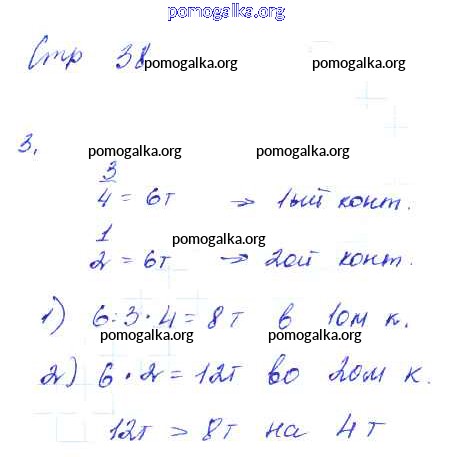 pomogalka.org
Стр 38
pomogalka.org pomogalka.org
3.
pomogalka.org pomogalka.org
3
4 = 6т → 1ый конт.
1 pomogalka.org
2 = 6т → 2ой конт.
1) 6:3·4 = 8т в 1ом к.
pomogalka.org pomogalka.org
2) 6·2 = 12т во 2ом к.
pomogalka.org
12т > 8т на 4т